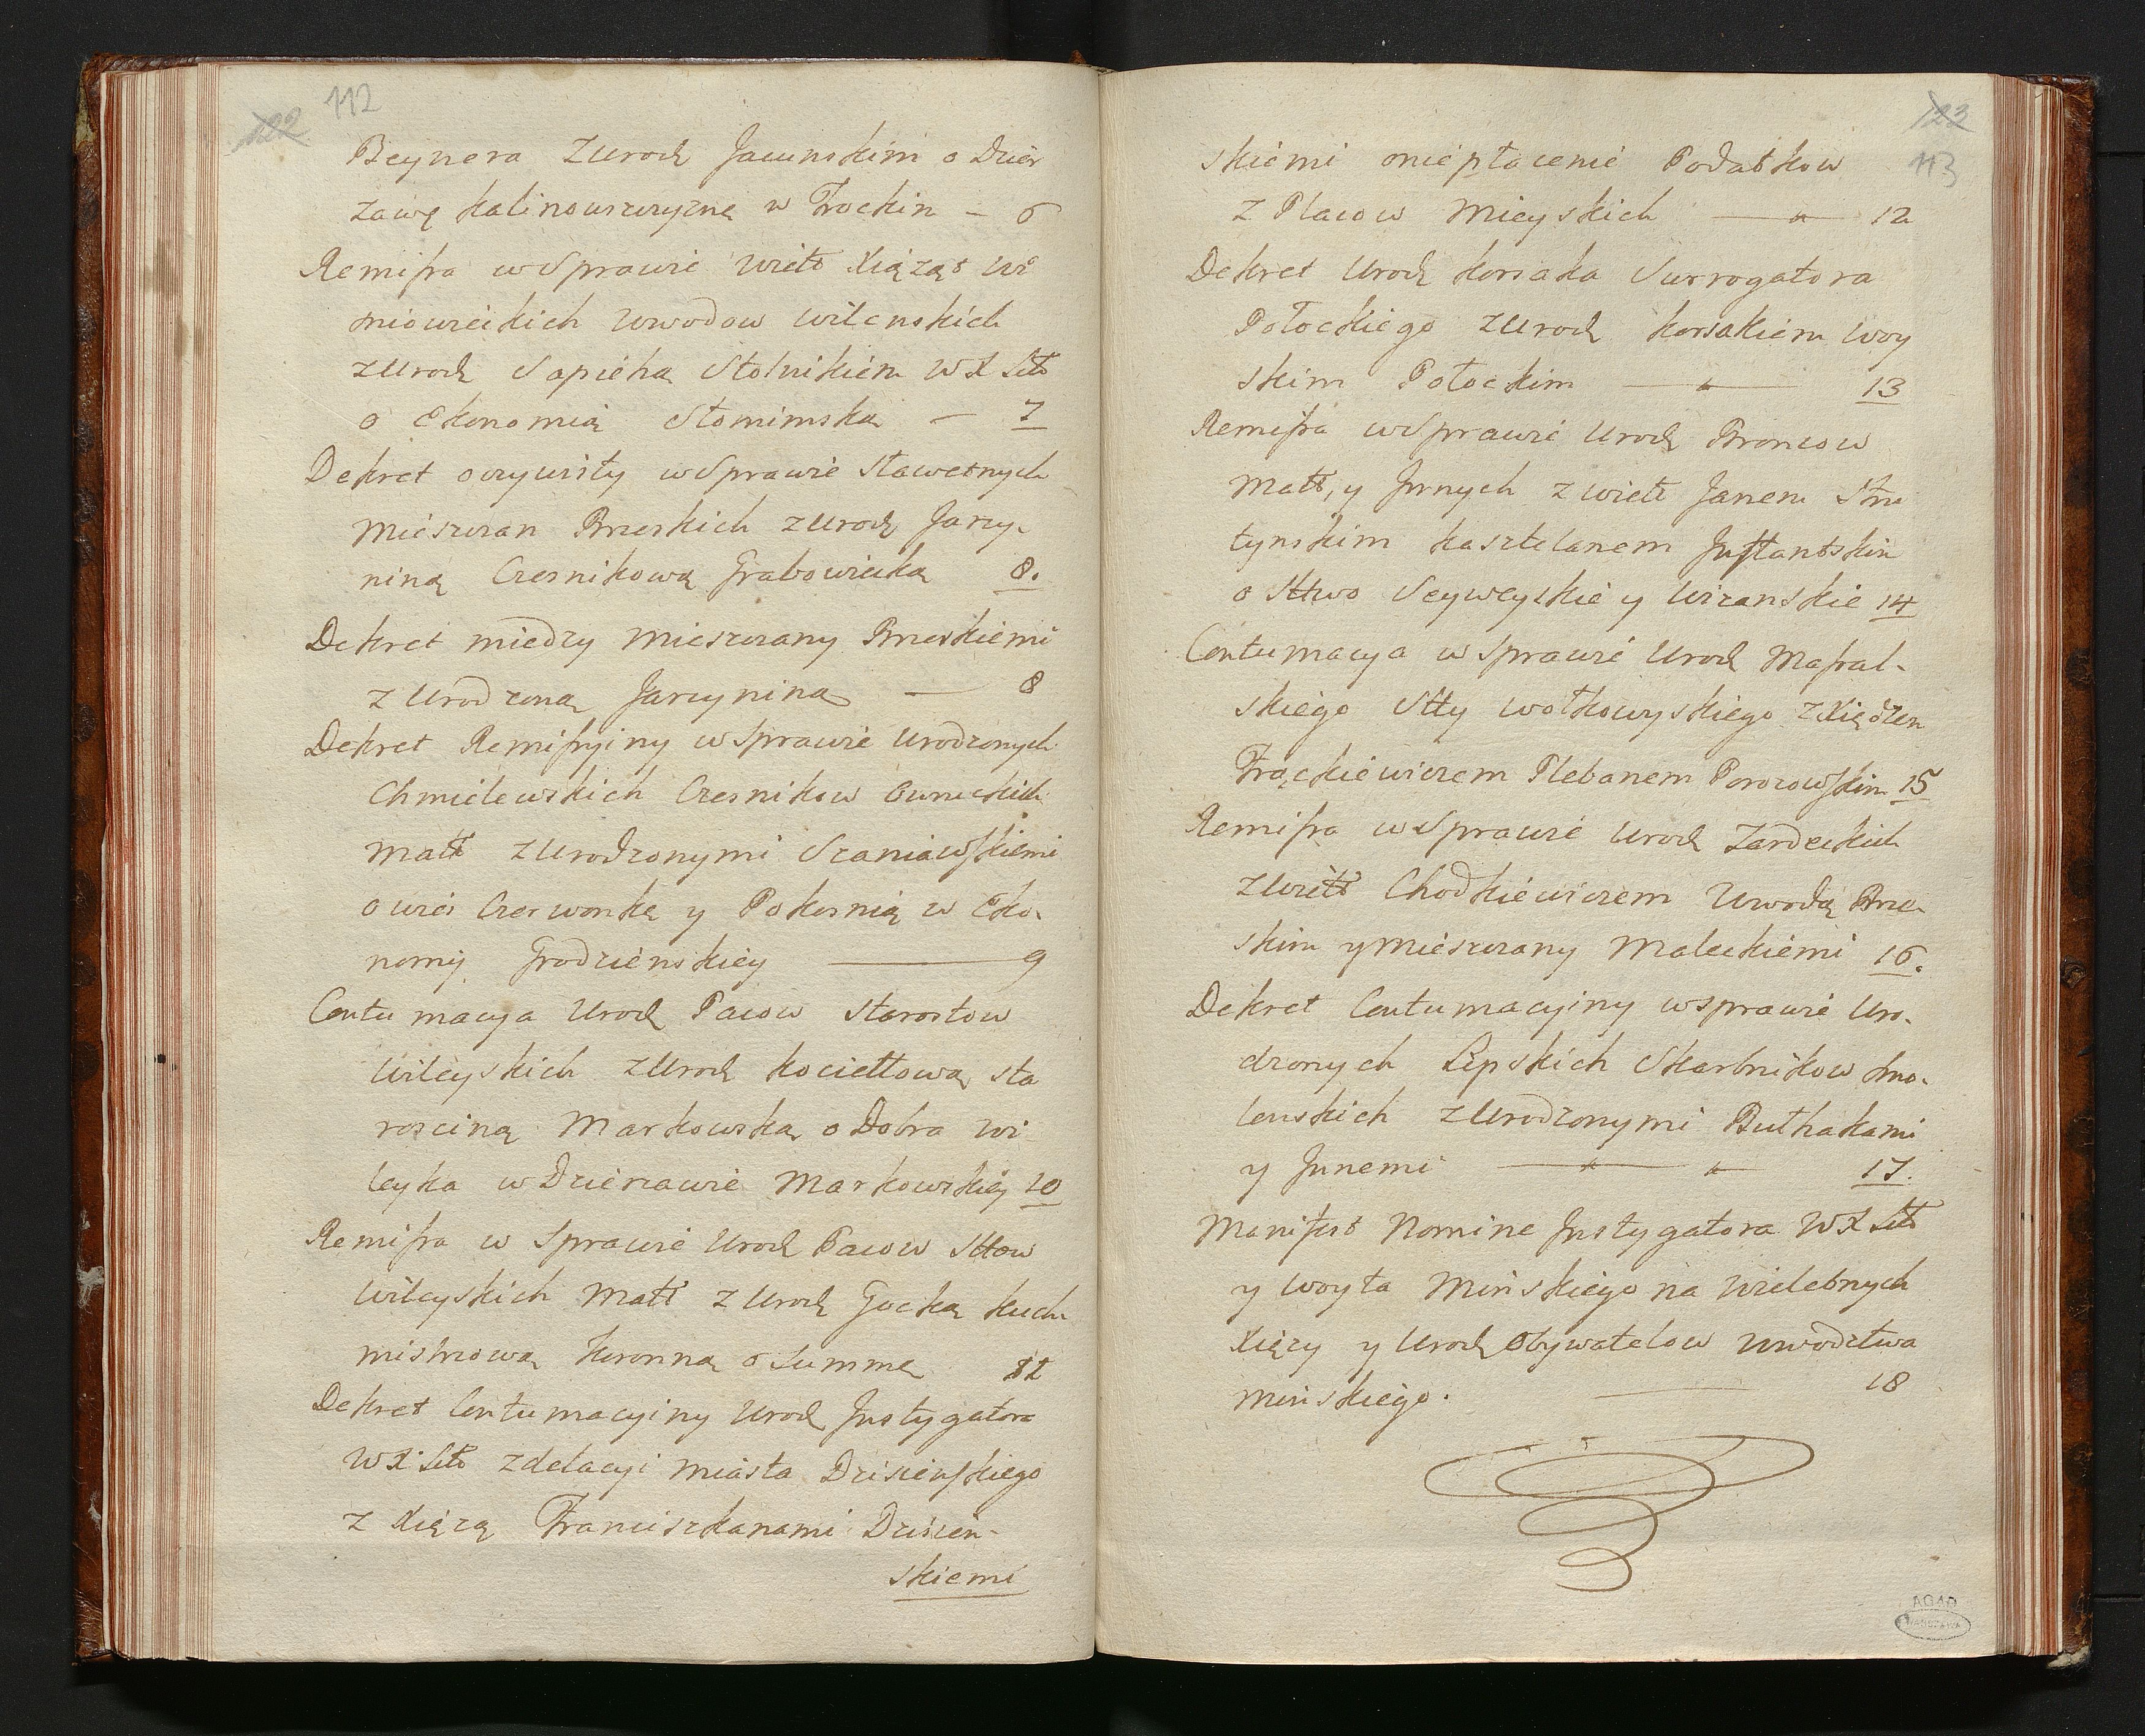 122 112
Beynera z Urod Jacunskim o Dzier
zawę Kalinowszczyznę w Trockim – 6
Remissa w Sprawie Wielt Xiążąt Wi
sniowieckich Wwodow Wilenskich
z Urod Sapiehą Stolnikiem W X Litt
o Ekonomią Słonimską – 7
Dekret oczywisty w Sprawie Sławetnych
Mieszczan Brzeskich z Urod Jarzy-
niną Czesnikową Grabowiecką 8.
Dekret między Mieszczany Brzeskiemi
z Urodzoną Jarzyniną — 8
Dekret Remissyiny w Sprawie Urodzonych
Chmielewskich Czesnikow
Małł z Urodzonymi Szaniawskiemi
o wies Czerwonkę y Pokosnią w Eko-
nomij Grodzienskiey — 9
Contumacya Urod Pacow Starostow
Wileyskich z Urod Kociełłową Sta
rosciną Markowską o Dobra Wi
leyka w Dzierzawie Markowskiey 10
Remissa w Sprawie Urod Pacow Sttow
Wileyskich Małł z Urod Kuch
mistrzową Koronną o Summę 11
Dekret Contumacyiny Urod Instygatora
W X Litt z delacyi Miasta Dzisienskiego
z Xięzą Franciszkanami Dzisien-
skiemi
123
113
skiemi o niepłacenie Podatkow
z Placow Mieyskich — " — 12
Dekret Urod Korsaka Surrogatora
Połockiego z Urod Korsakiem Woy
skim Połockim — " — 13
Remissa w Sprawie Urod Broncow
Małł, y Jnnych z Wielt Janem Stru
tynskim Kasztelanem Jnflantskim
o Sttwo Seyweyskie y Wizanskie 14
Contumacya w Sprawie Urod Massal-
skiego Stty Wołkowyskiego z Xiędzem
Frąckiewiczem Plebanem Porozowskim 15
Remissa w Sprawie Urod Zardeckich
z Wielt Chodkiewiczem Wwodą Brze-
skim y Mieszczany Maleckiemi 16.
Dekret Contumacyiny w sprawie Uro-
dzonych Lipskich Skarbnikow Smo-
lenskich z Urodzonymi Bułhakami
y Jnnemi — " — " — 17.
Manifest Nomine Jnstygatora W X Litt
y Woyta Minskiego na Wielebnych
Xięzy y Urod Obywatelow Wwodztwa
Minskiego. — 18
AGAD
WARSZAWA